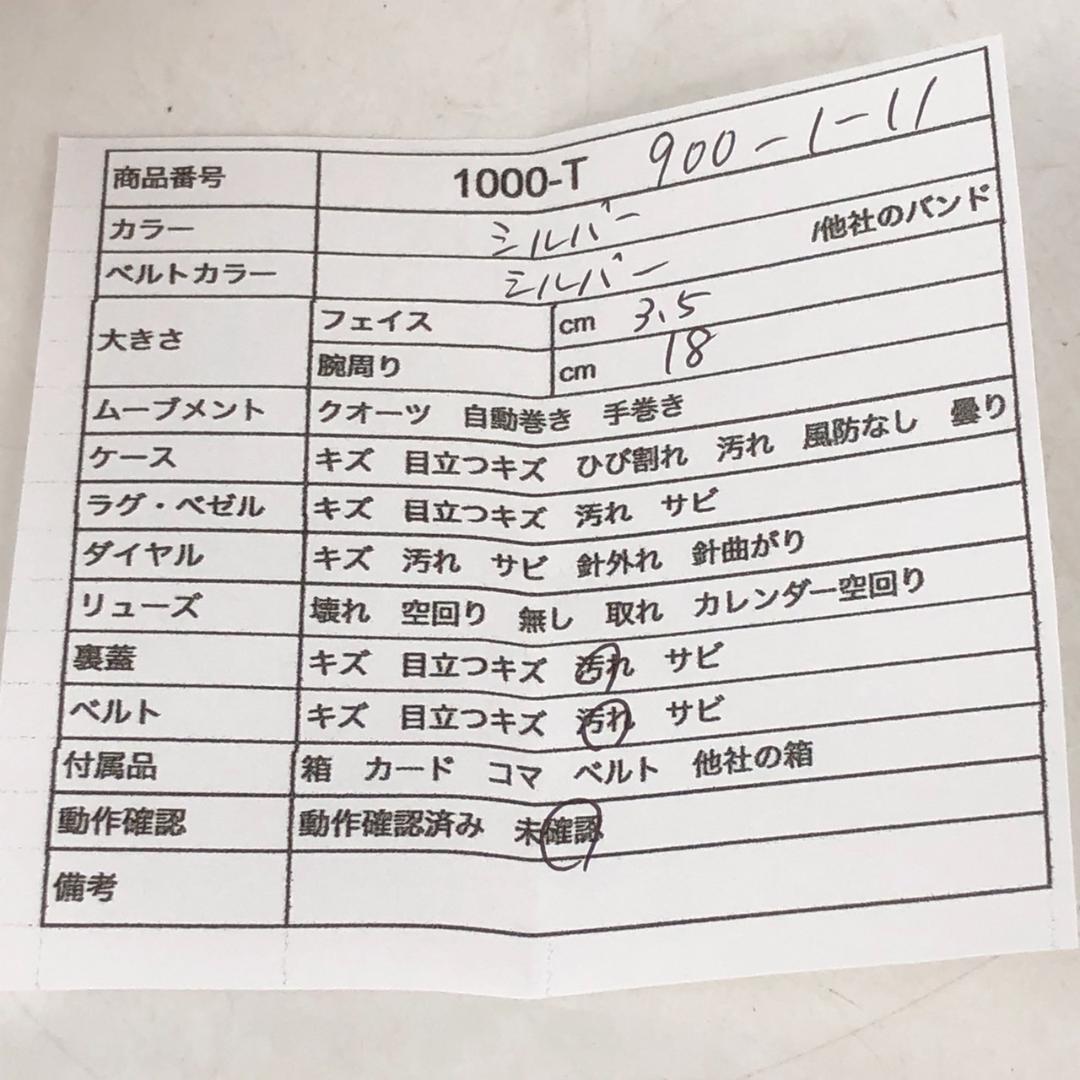 商品番号 1000-T 900-1-11
カラー シルバー
ベルトカラー シルバー /他社のバンド
大きさ フェイス cm 3.5
腕周り cm 18
ムーブメント クオーツ 自動巻き 手巻き
ケース キズ 目立つキズ ひび割れ 汚れ 風防なし 曇り
ラグ・ベゼル キズ 目立つキズ 汚れ サビ
ダイヤル キズ 汚れ サビ 針外れ 針曲がり
リューズ 壊れ 空回り 無し 取れ カレンダー空回り
裏蓋 キズ 目立つキズ 汚れ サビ
ベルト キズ 目立つキズ 汚れ サビ
付属品 箱 カード コマ ベルト 他社の箱
動作確認 動作確認済み 未確認
備考